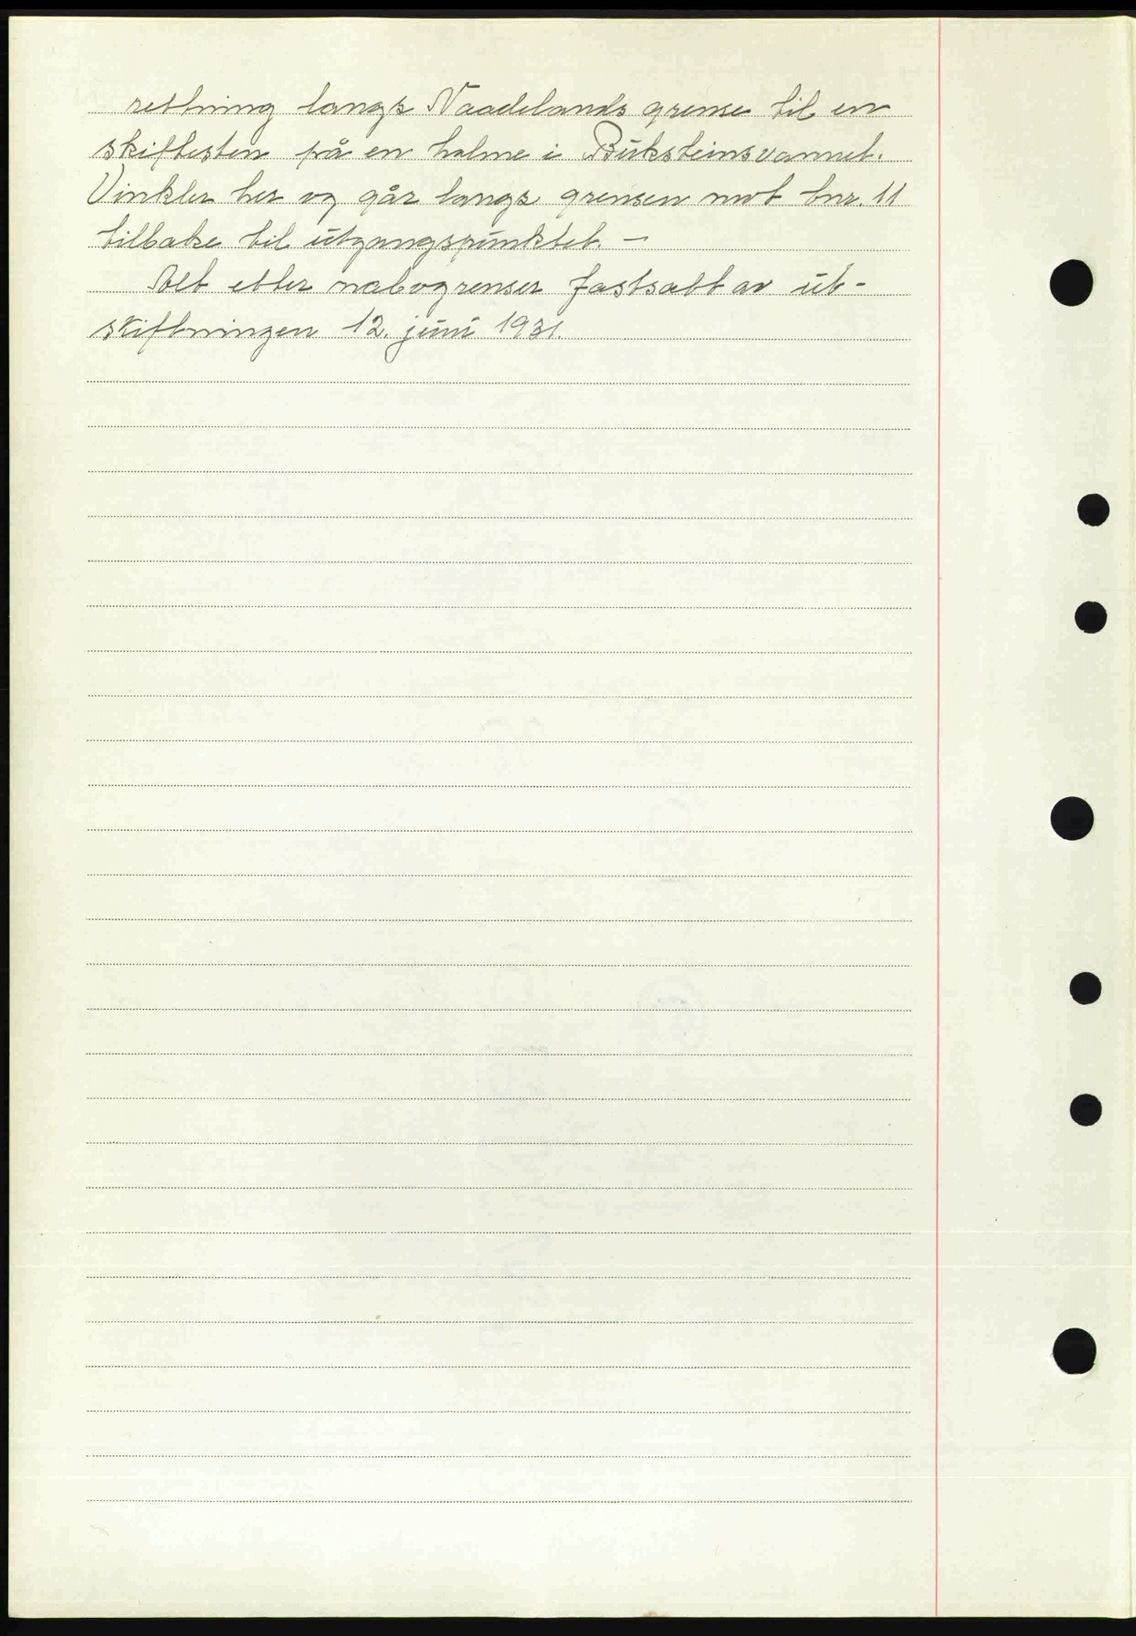 retning langs Naadelands grense til en
skiftesten på en holme i Buksteinsvannet.
Vinkler her og går langs grensen mot bnr. 11
tilbake til utgangspunktet. —
Alt etter nabogrenser fastsatt av ut-
skiftningen 12. juni 1931.